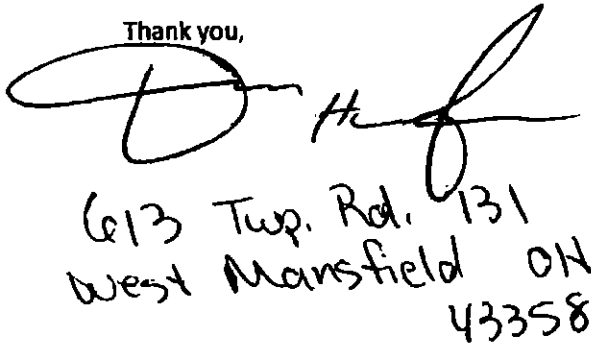 Thank you,
613 Twp. Rd. 131
West Mansfield OH
43358